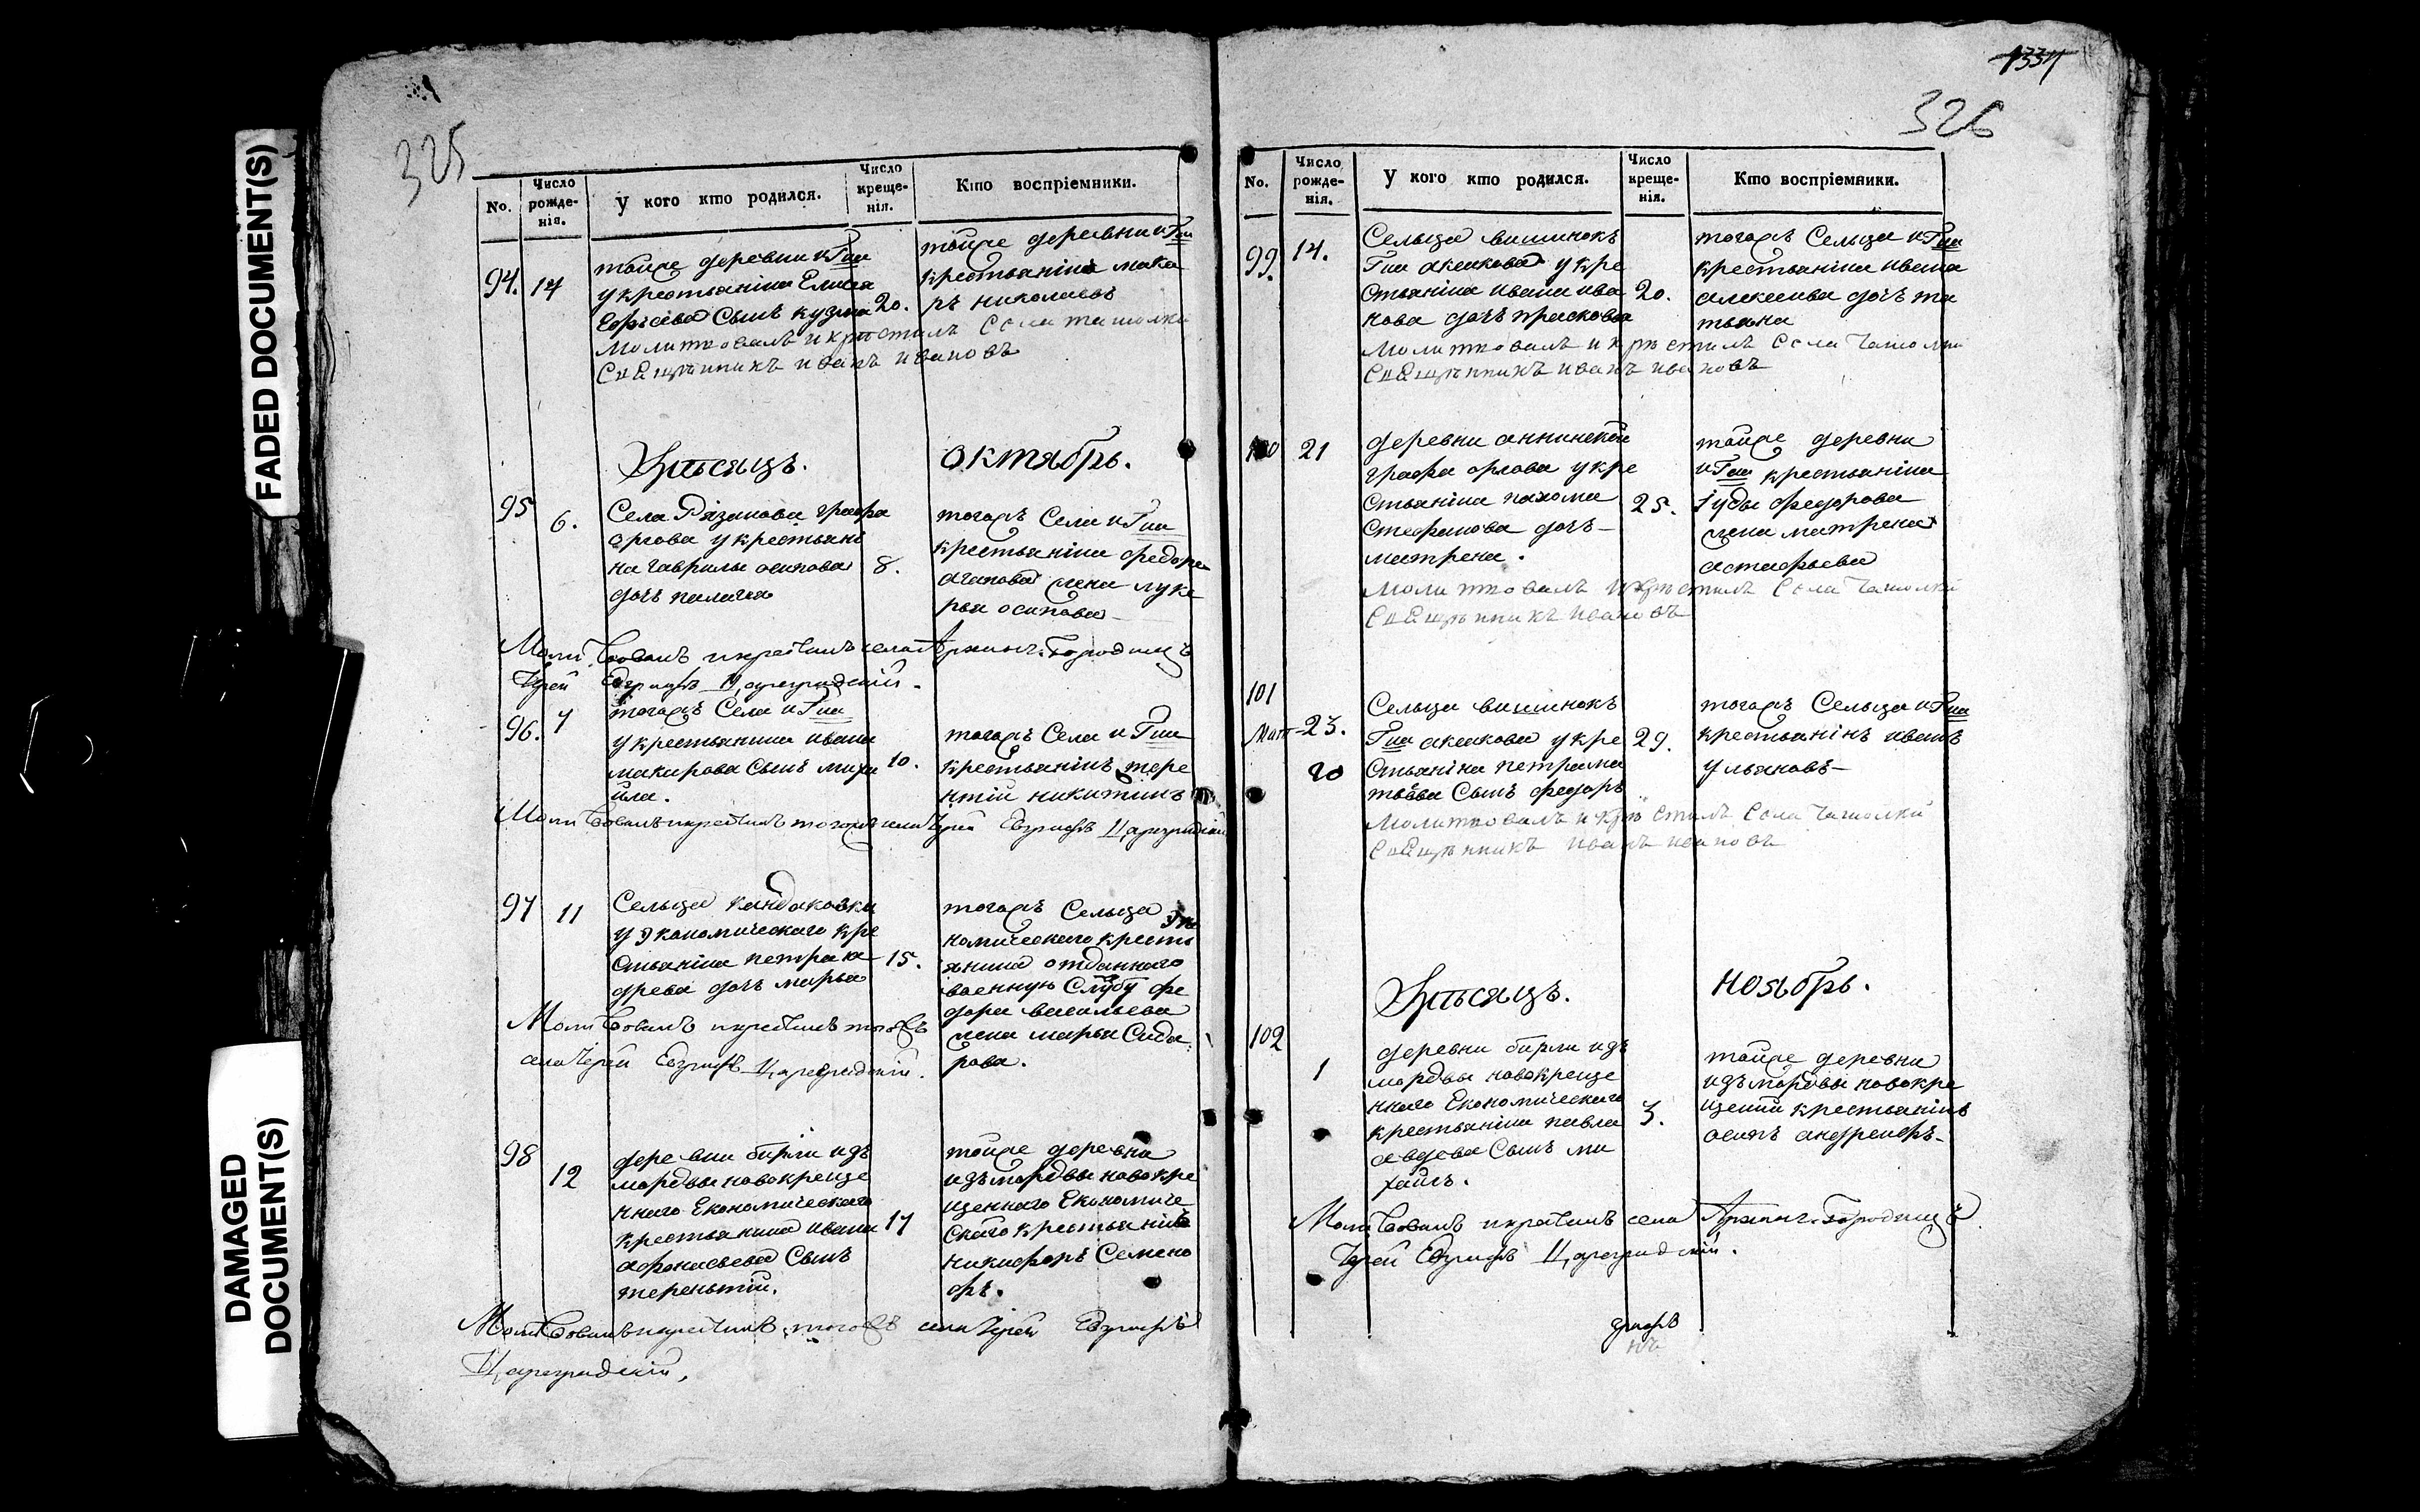 FADED DOCUMENT(S)
DAMAGED
DOCUMENT(S)
325
No.
Число
рожде-
нія.
У кого кто родился.
Число
креще-
нія.
Кто воспріемники.
94. 14
тойже деревни и Гжи
у крестьянина Елисея
Сынъ кузма
20.
тойже деревни и Гжи
крестьянина мака
ръ николаевъ
Молитвовалъ и крестилъ Села
Священникъ иванъ ивановъ
Мѣсяцъ. октябрь.
95
6.
Села Рязанова графа
орлова у крестьяни
на гаврилы осипова
дочь пелагея
8.
тогожъ Села и Гжи
крестьянина федора
агапова жена луке
рья осипова
Молитвовалъ и крестилъ села Архан. Городищъ
Іерей Евграфъ Цареградскій.
96. 7
тогожъ Села и Гжи
у крестьянина ивана
макарова Сынъ миха
йла.
10.
тогожъ Села и Гжи
крестьянинъ тере
нтій никитинъ
Молитвовалъ и крестилъ тогожъ села Іерей Евграфъ Цареградскій
97 11
Сельца кандаковки
у экономическаго кре
стьянина петра а
древа дочь марья
15.
тогожъ Сельца эко
номическаго кресть
янина отданнаго
военную Службу фе
дора васильева
жена марья Сидо
рова.
Молитвовалъ и крестилъ тогожъ
села Іерей Евграфъ Цареградскій.
98
12
деревни бирли изъ
мордвы новокреще
ннаго Економическаго
крестьянина ивана
афонасьева Сынъ
терентій.
17
тойже деревни
изъ мордвы новокре
щеннаго Економиче
скаго крестьянинъ
никифоръ Семено
фъ.
Молитвовалъ и крестилъ тогожъ села Іерей Евграфъ
Цареградскій,
1334
326
No.
Число
рожде-
нія.
У кого кто родился.
Число
креще-
нія.
Кто воспріемники.
99. 14.
Сельца вишинокъ
Гжи аксакова у кре
стьянина ивана ива
нова дочь прасковья
20.
тогожъ Сельца и Гжи
крестьянина ивана
алексеива дочь та
тьяна
Молитвовалъ и крестилъ Села
Священникъ иванъ ивановъ
100 21
деревни аннинской
графа орлова у кре
стьянина пахома
Стефанова дочь
матрена.
25.
тойже деревни
и Гжи крестьянина
федорова
жена матрена
астафьева
Молитвовалъ и крестилъ Села
Священникъ ивановъ
101
23.
20
Сельца вишинокъ
Гжи аксакова у кре
стьянина петра ма
твѣва Сынъ федоръ
29.
тогожъ Сельца и Гжи
крестьянинъ иванъ
ульяновъ
Молитвовалъ и крестилъ Села
Священникъ иванъ ивановъ
Мѣсяцъ. ноябрь.
102
1
деревни бирли изъ
мордвы новокреще
ннаго Економическаго
крестьянина павла
авдева Сынъ ми
хаилъ.
3.
тойже деревни
изъ мордвы новокре
щеный крестьянинъ
осипъ андреифъ
Молитвовалъ и крестилъ села Архан. Городищъ
Іерей Евграфъ Цареградскій.